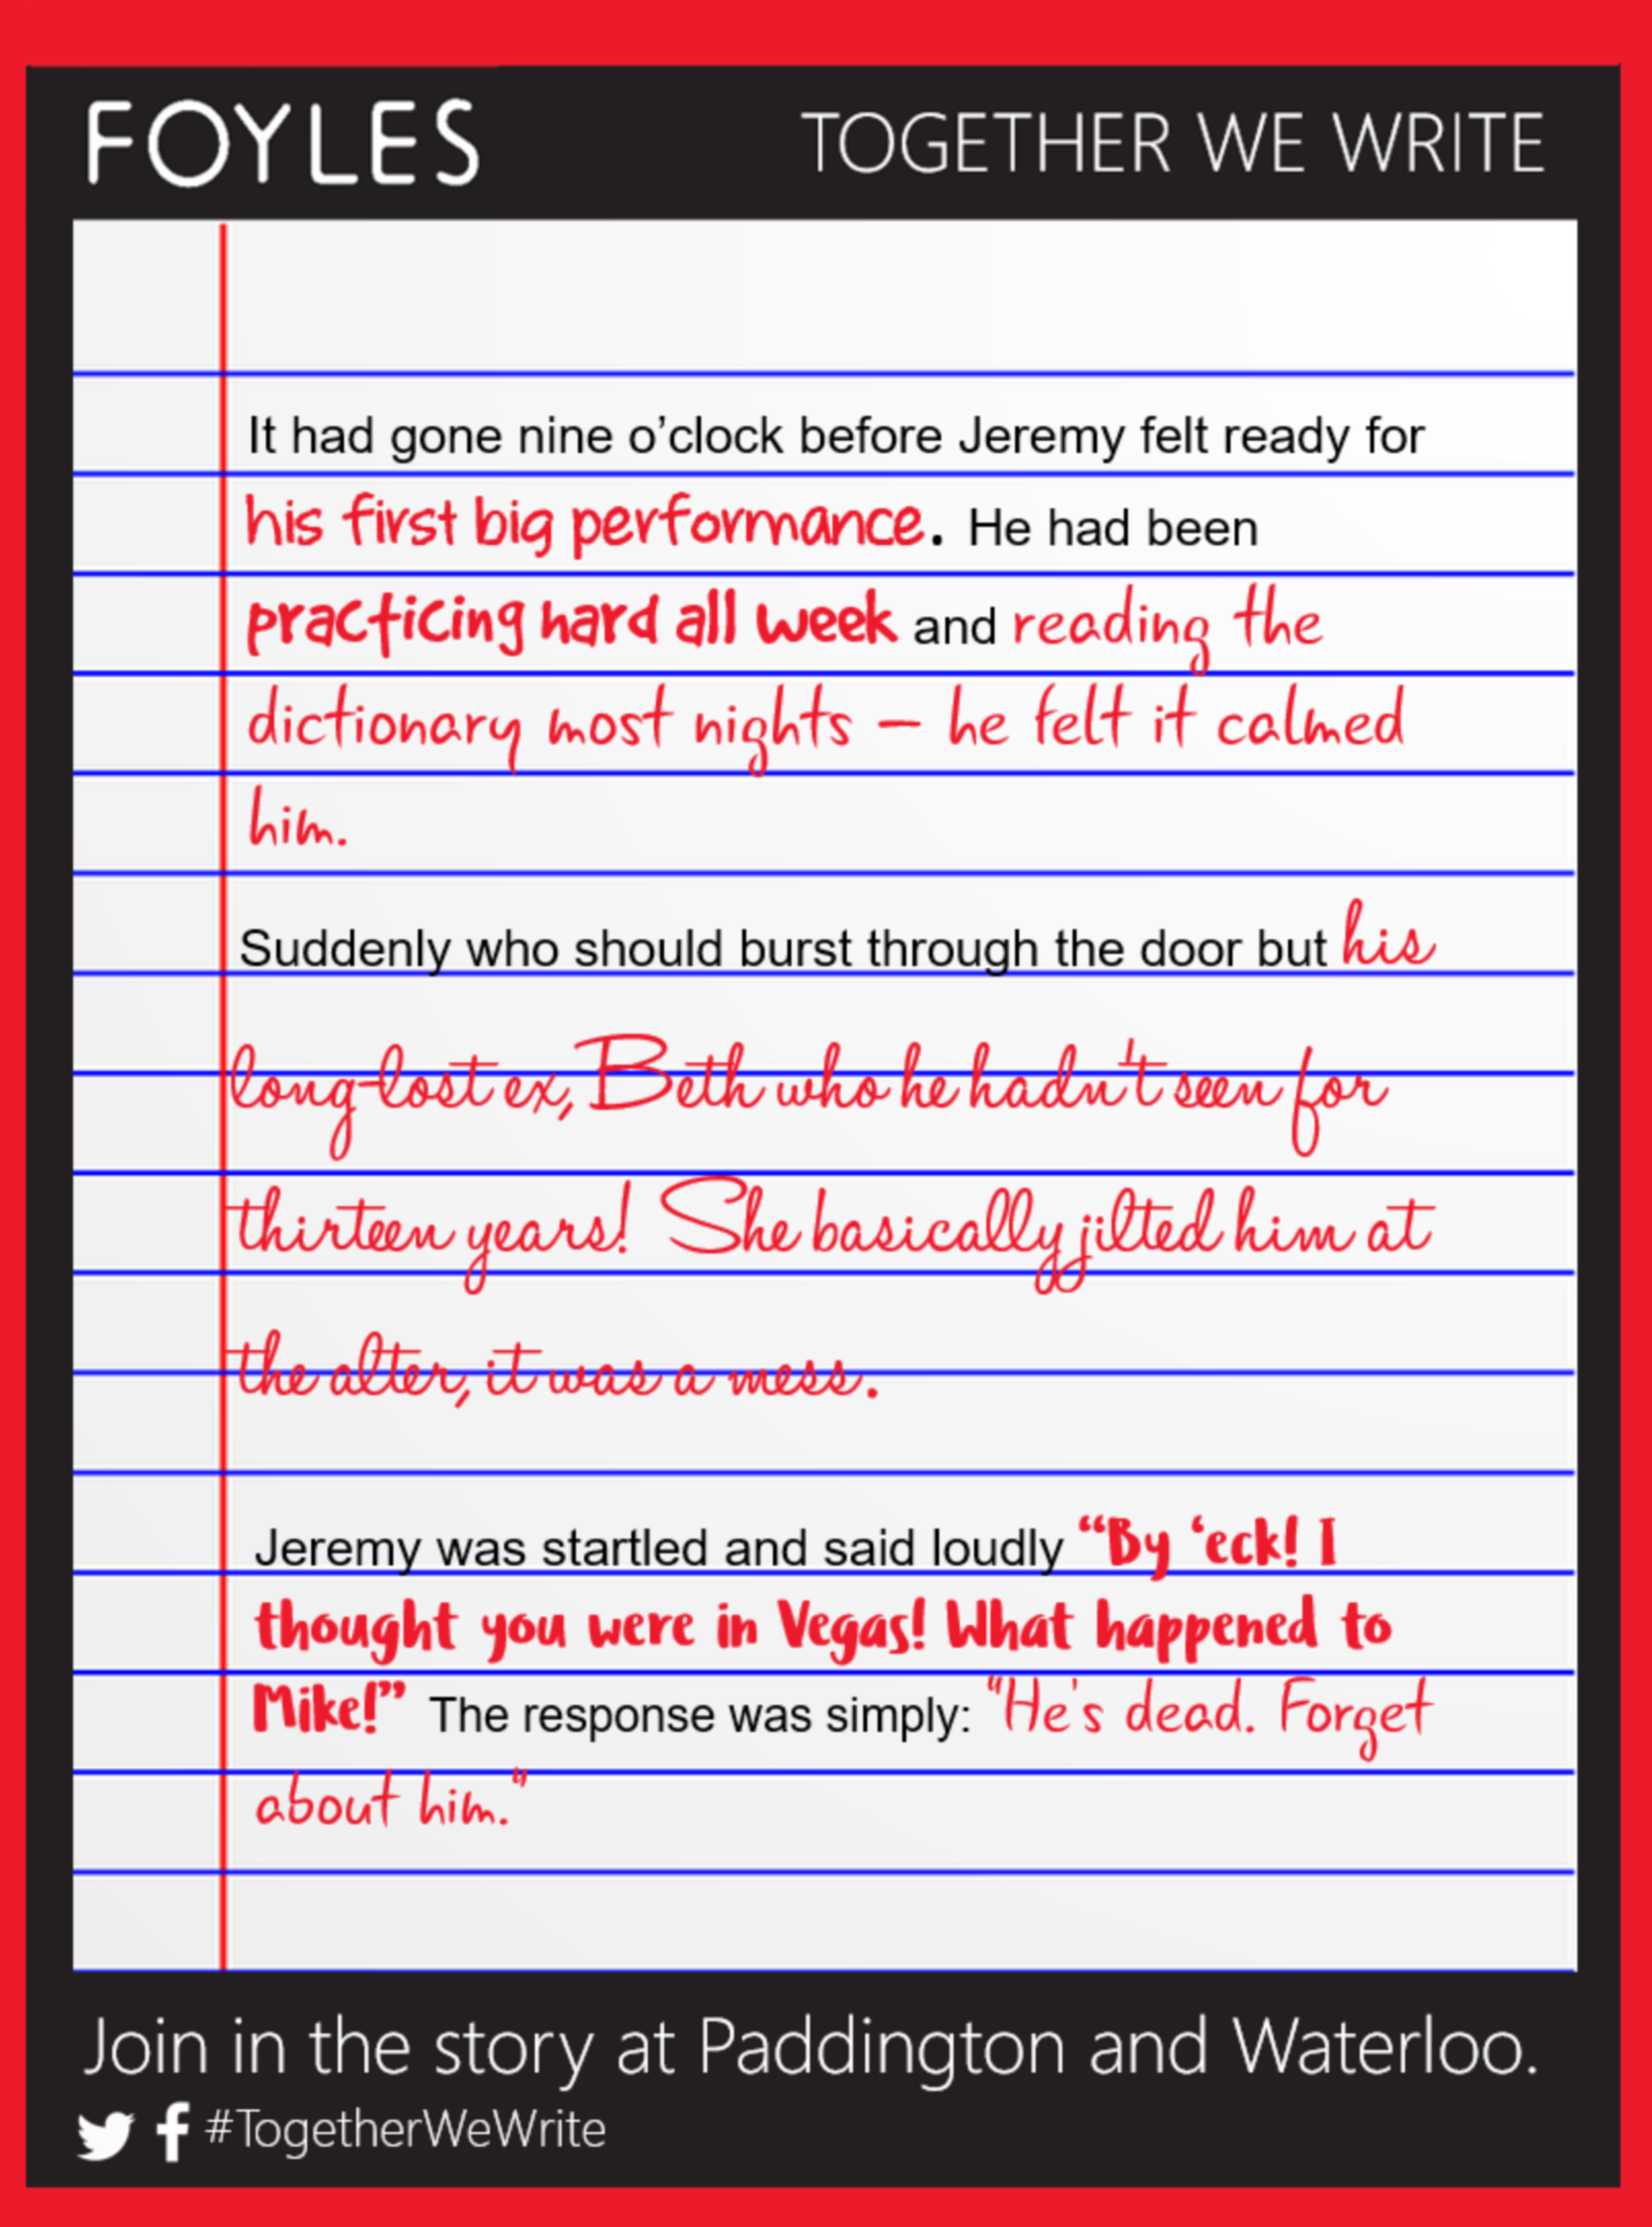 FOYLES
TOGETHER WE WRITE
It had gone nine o’clock before Jeremy felt ready for
his first big performance. He had been
practicing hard all week and reading the
dictionary most nights – he felt it calmed
him.
Suddenly who should burst through the door but his
long-lost ex, Beth who he hadn't seen for
thirteen years! She basically jilted him at
the alter, it was a mess.
Jeremy was startled and said loudly “By ‘eck! I
thought you were in Vegas! What happened to
Mike!” The response was simply: "He's dead. Forget
about him."
Join in the story at Paddington and Waterloo.
#TogetherWeWrite